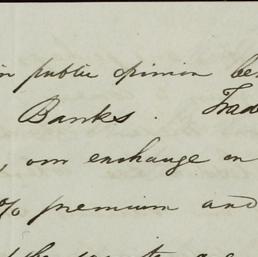 in public opinion be
Banks. Trad
, om exchange on
% premium and